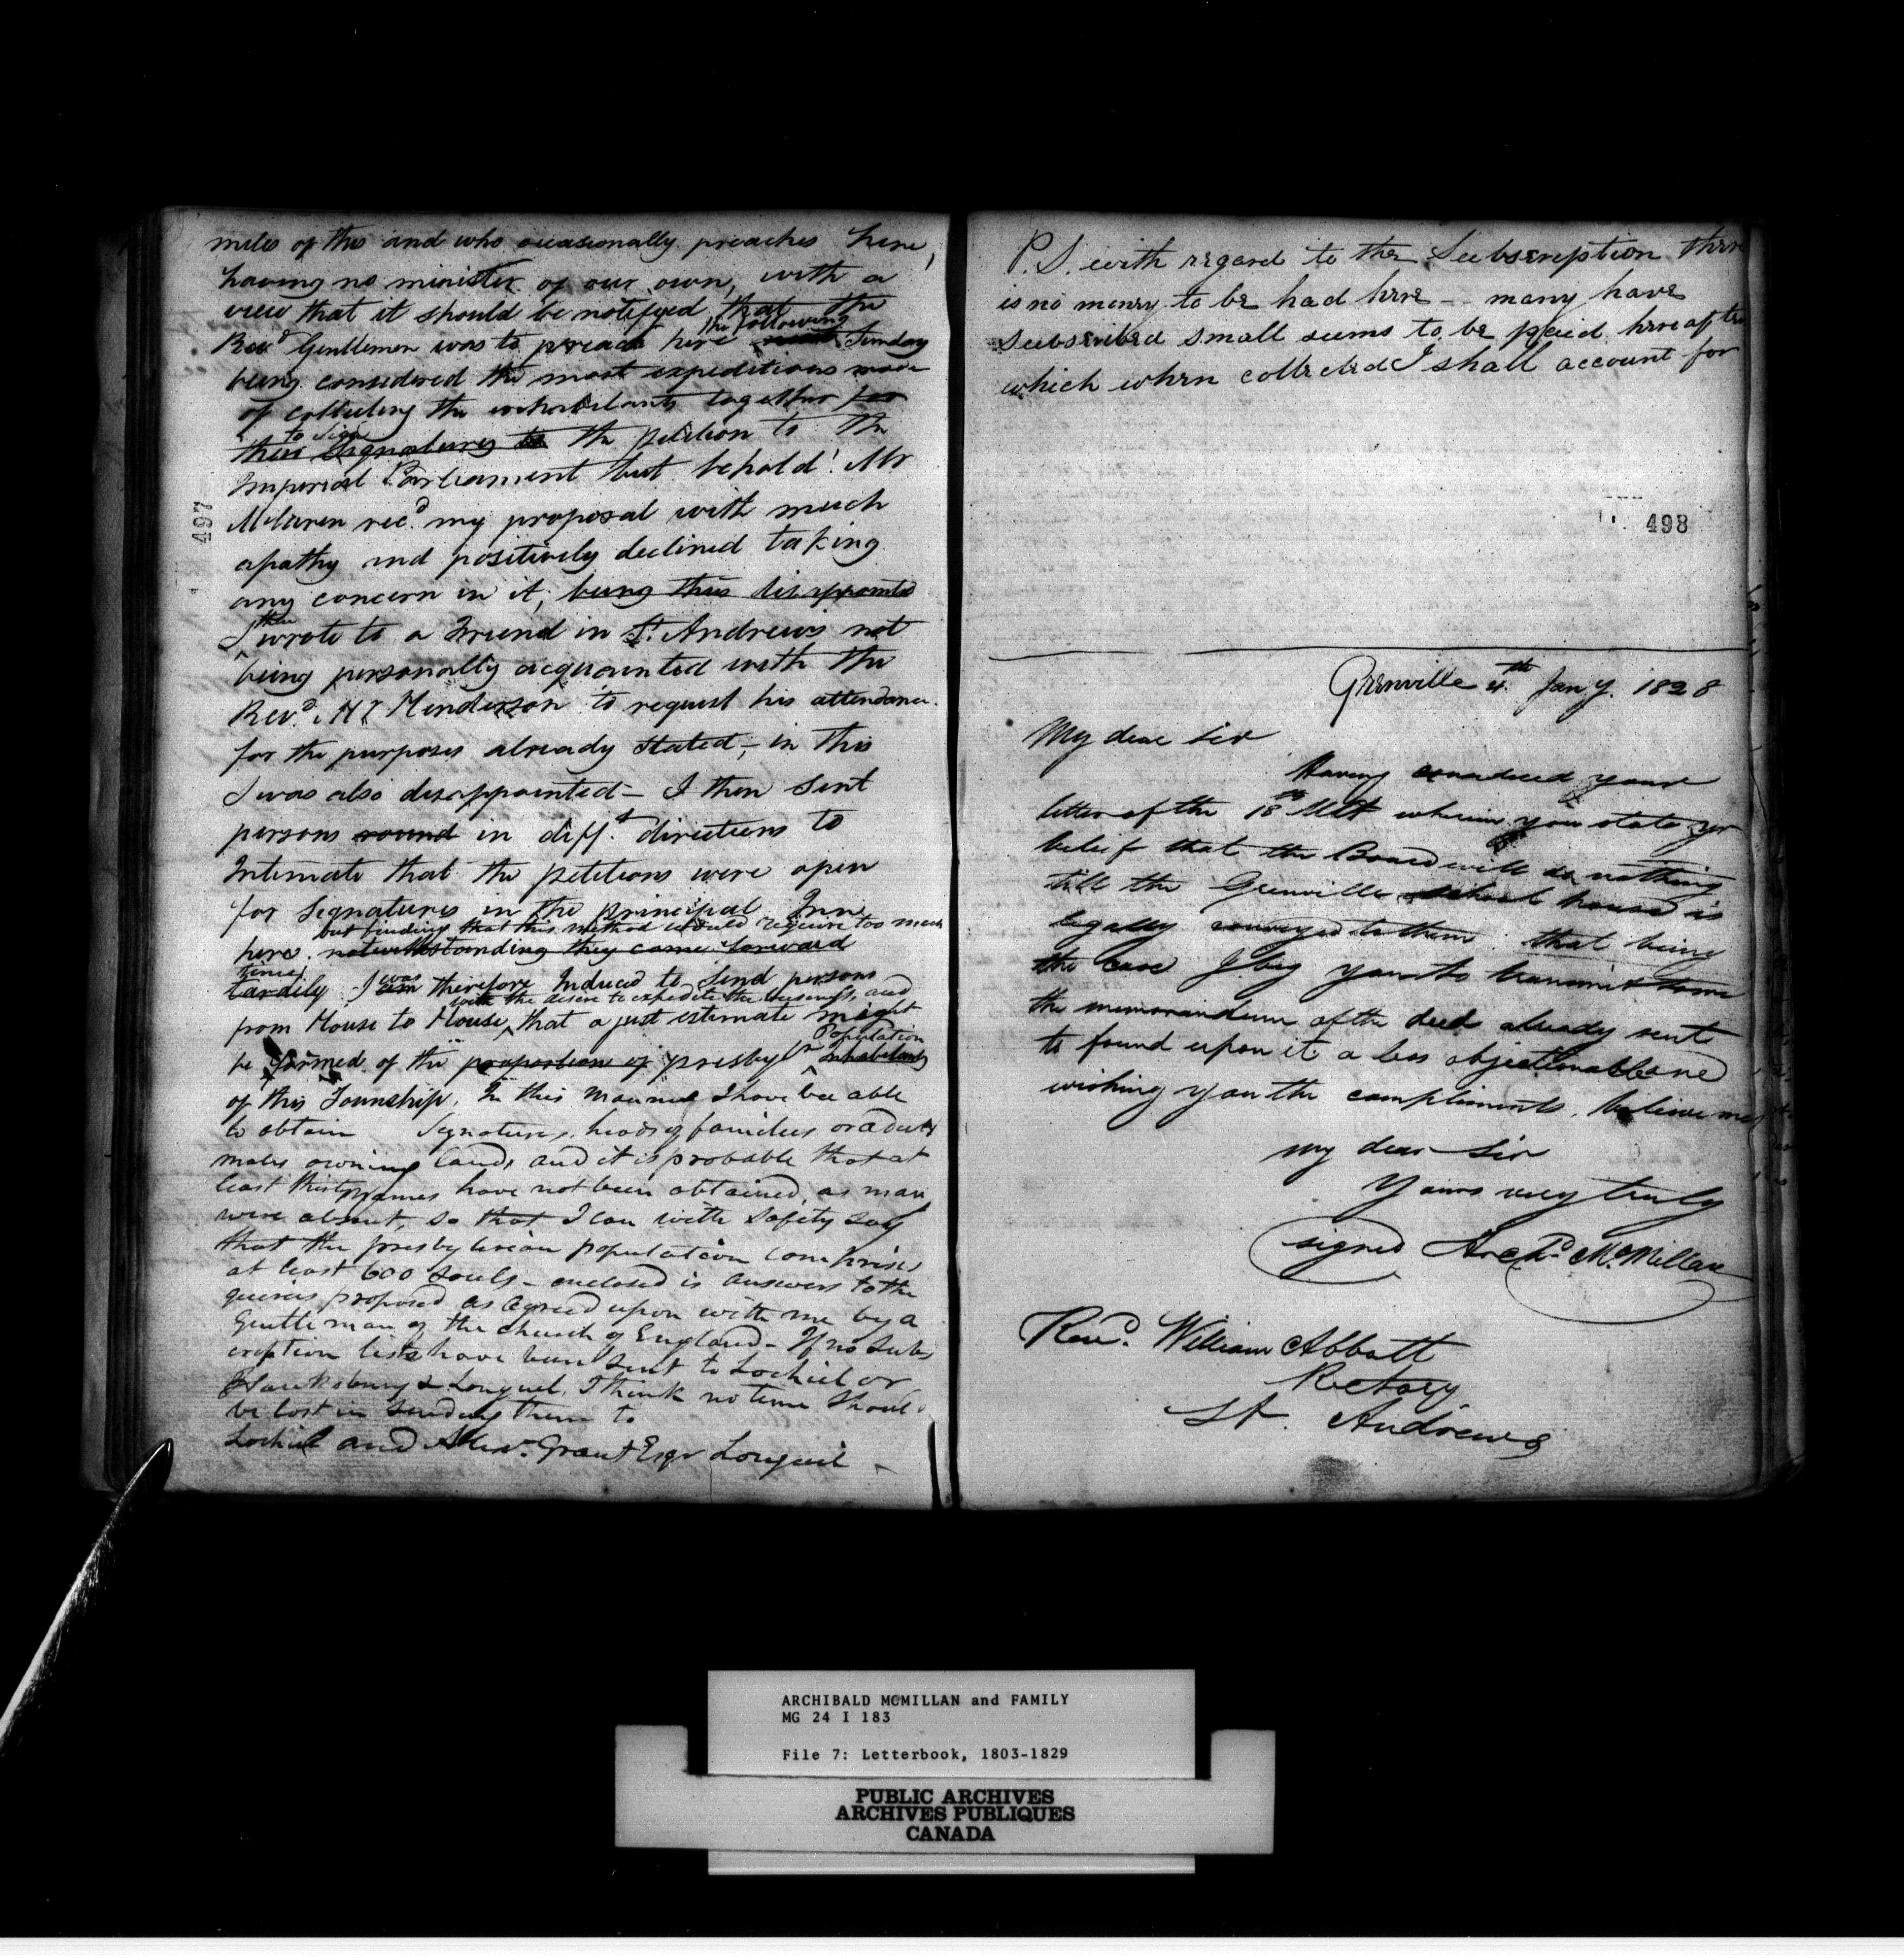 miles of this and who occasionally preaches here,
having no minister of our own, with a
view that it should be notifyed that the
Revd Gentlemen was to preach here the following Sunday
being considered the most expeditious mode
of collecting the inhabitants together for
to sign
their Signatures to the petition to the
Imperial Parliament but behold! Mr
McLaren recd my proposal with much
apathy and positively declined taking
any concern in it, being thus disappointed
I then wrote to a Friend in St. Andrews not
being personally acquainted with the
Revd. Mr Henderson to request his attendance
for the purposes already stated, in this
I was also disappointed – I then sent
persons round in difft. directions to
Intimate that the petitions were open
for Signatures in the principal Inn
but finding that this method would require too much
here. notwithstanding they came forward
time,
tardily. I was therefore Induced to Send persons
with the desire to expedite the business, and
from House to House, that a just estimate might
Population
be formed of the proportion of presbyn inhabitants
of this Township. In this manner I have bee able
to obtain Signatures, heads of families or adult
males owning land, and it is probable that at
least thirty names have not been obtained, as many
were absent, so that I can with safety say
that the presbyterian population comprises
at least 600 Souls – enclosed is answers to the
queries proposed as agreed upon with me by a
Gentleman of the Church of England – If no Subs
cription lists have been sent to Lochiel or
Hawksbury & Longuel, I think no time should
be lost in sending them to
Lochiel and Alexr. Grant Esqr Longueil –
497
P.S. with regard to the Subscription there
is no money to be had here – many have
subscribed small sums to be paid hereafter
which when collected I shall account for
498
Grenville 4th Jany. 1828
My dear Sir
Having considered your
letter of the 18th Ult wherein you state yr
belief that the Board will do nothing
till the Grenville school house is
legally conveyed to them. that being
the case I beg you to transmit to me
the memorandum of the deed already sent
to found upon it a less objectionable one
wishing you the compliments, believe me
my dear Sir
Yours very truly
signed Archd. McMillan
Revd. William Abbott
Rectory
St. Andrews
ARCHIBALD MCMILLAN and FAMILY
MG 24 I 183
File 7: Letterbook, 1803-1829
PUBLIC ARCHIVES
ARCHIVES PUBLIQUES
CANADA